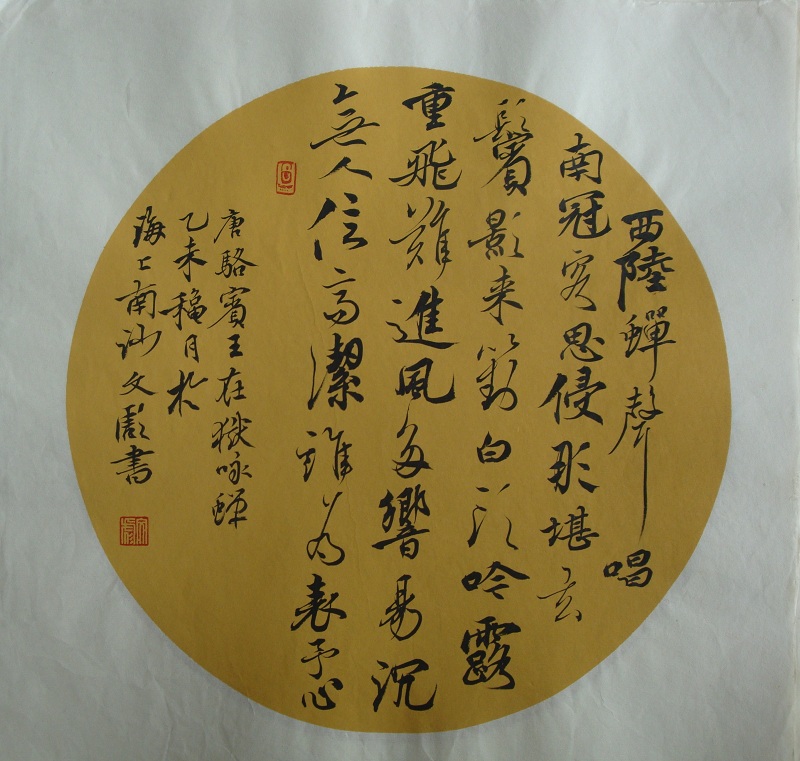 西陸蟬聲唱
南冠客思侵那堪玄
鬢影来對白頭吟露
重飛難進風多響易沉
無人信高潔誰為表予心
唐駱賓王在獄咏蟬
乙未穐月於
海上南沙文書